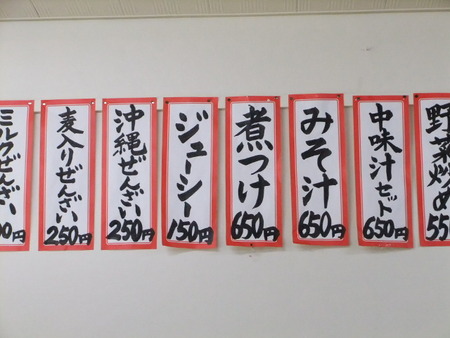 野菜炒め
55
中味汁セット
650円
みそ汁
650円
煮つけ
650円
ジューシー
150円
沖縄ぜんざい
250円
麦入りぜんざい
250円
ミルクぜんざい
00円